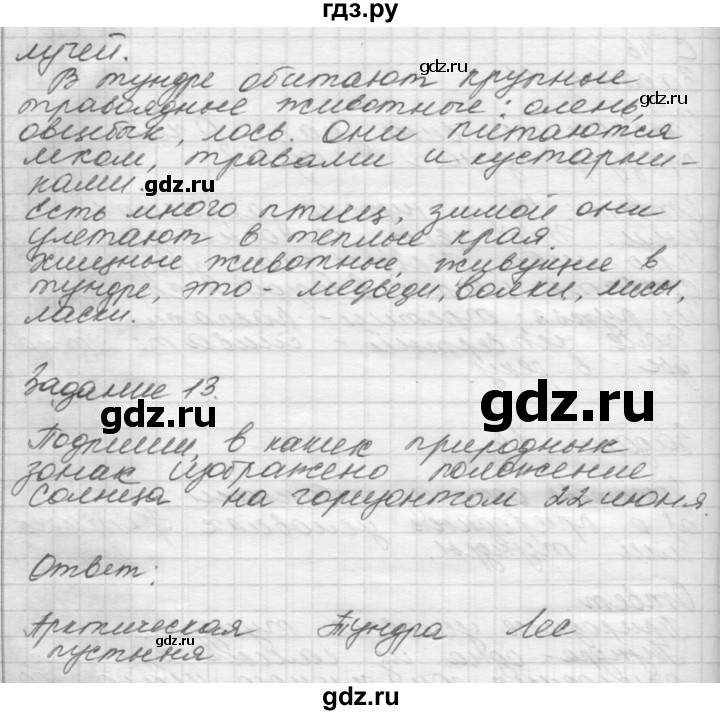 гдз.ру
лучей.
В тундре обитают крупные
gdz.ru
травоядные животные: олень,
gdz.ru
овцебык, лось. Они питаются
мхом, травами и кустарни-
ками.
gdz.ru
Есть много птиц, зимой они
улетают в теплые края.
Хищные животные, живущие в
тундре, это - медведи, волки, лисы,
ласки.
Задание 13.
gdz.ru
gdz.ru
Подпиши, в каких природных
зонах изображено положение
солнца на горизонтом 22 июня.
Ответ:
Арктическая Тундра Лес
пустыня
gdz.ru
gdz.ru